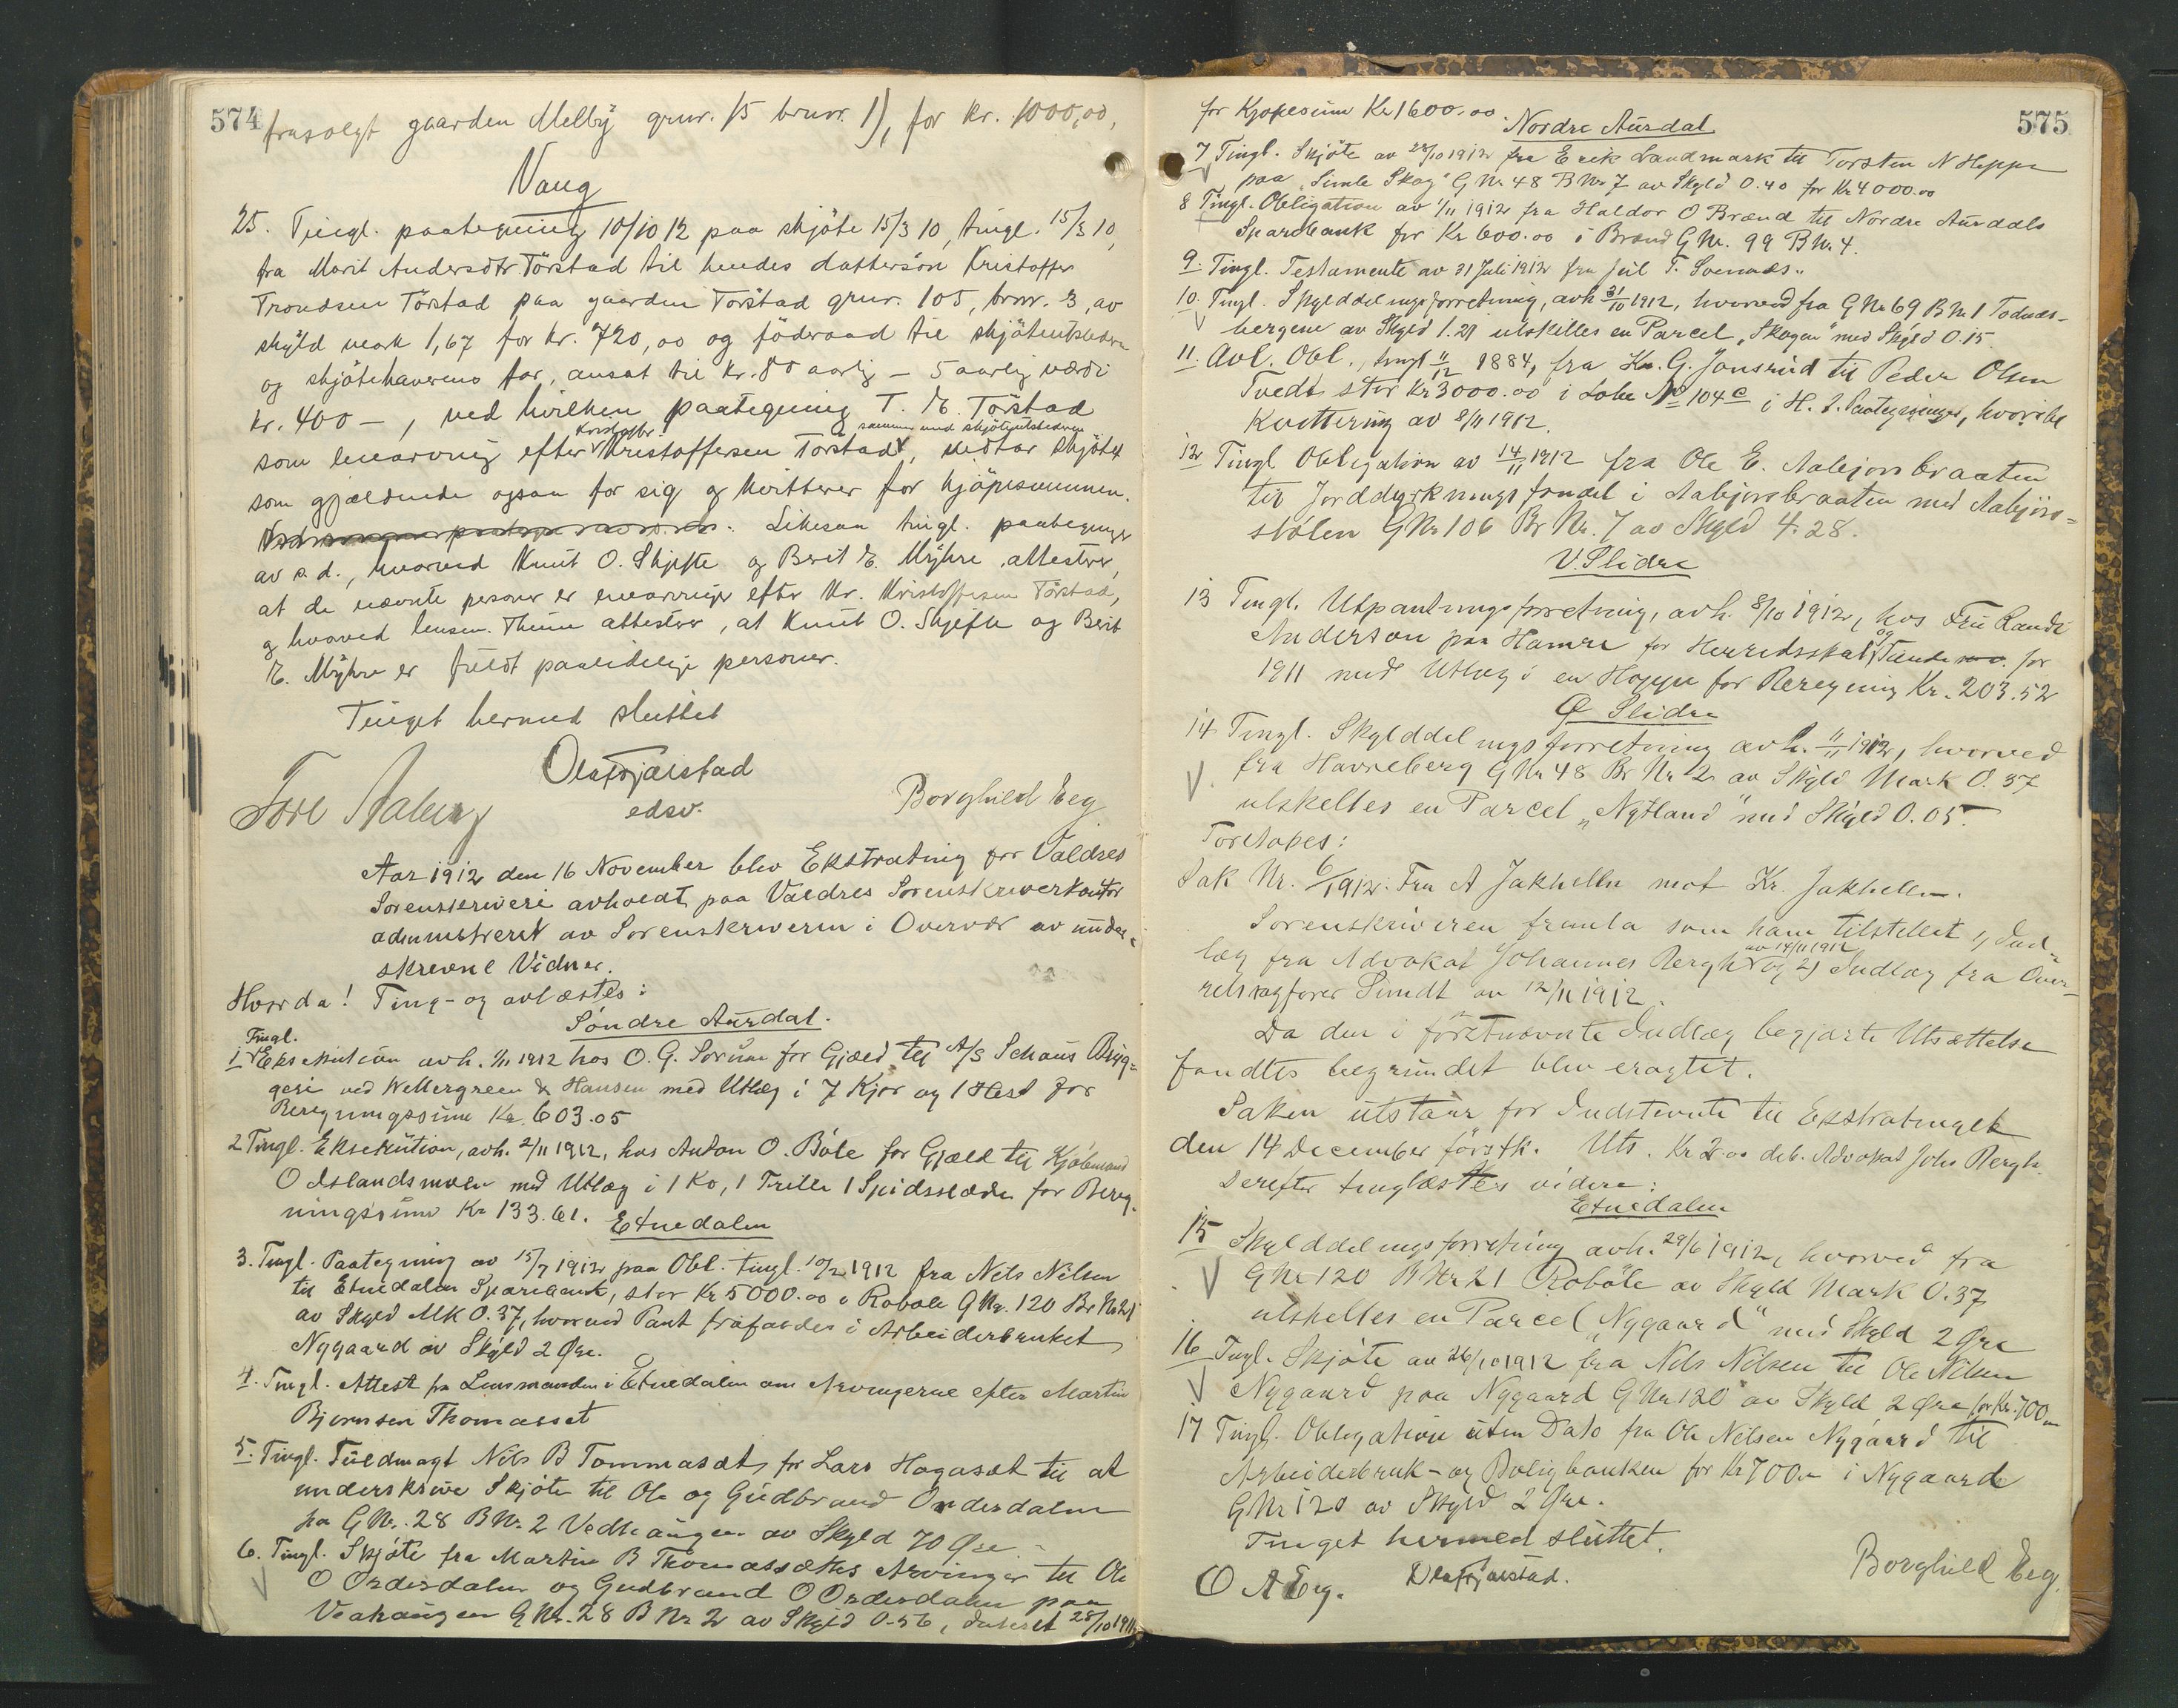 574
frasolgt gaarden Melby gnr. 15 brnr. 1), for kr. 1000,00,
Vang
25. Tingl. paategning 10/10 12 paa skjöte 15/3 10, tingl. 15/3 10,
fra Marit Andersdtr. Törstad til hendes dattersön Kristoffer
Trondsen Törstad paa gaarden Törstad gnr. 105, brnr. 3, av
skyld mark 1,67 for kr. 720,00 og föderaad til skjöteutstederen
og skjötehaverens far, ansat til kr. 80 aarlig – 5 aarlig værdi
kr. 400 –, ved hvilken paategning T. K. Törstad
Kristoffer sammen med skjöteutstederen
som enearving efter Kristoffersen Törstad, vedtar skjötet
som gjældende ogsaa for sig og kvitterer for kjöpesummen.
Likesaa tingl. paategninger
av s. d., hvorved Knut O. Skjefte og Berit K. Myhre attesterer,
at de nævnte personer er enearvinger efter Kr. Kristoffersen Törstad,
og hvorved lensm. Thune attesterer, at Knut O. Skjefte og Berit
K. Myhre er fuldt paalidelige personer.
Tinget hermed sluttet
Ola Fjalstad
edsv.
Tore Aaberg
Borghild Eeg
Aar 1912 den 16 November blev Ekstrating for Valdres
Sorenskriveri avholdt paa Valdres Sorenskriverkontor
administreret av Sorenskriveren i Overvær av under-
skrevne Vidner.
Hvorda! Ting- og avlæstes:
Søndre Aurdal.
Tingl.
1 Eksekution avh. 1/11 1912 hos O. G. Sorum for Gjæld til A/S Schous Bryg-
geri ved Wettergreen & Hansen med Utlæg i 7 Kjør og 1 Hest for
Beregningssum Kr. 603.05
2 Tingl. Eksekution, avh. 2/11 1912, hos Anton O. Bøle for Gjæld til Kjøbmand
O Islandsmoen med Utlæg i 1 Ko, 1 Trille 1 Spidsslæde for Bereg-
ningssum Kr 133.61.
Etnedalen
3. Tingl. Paategning av 15/7 1912 paa Obl. tingl. 10/2 1912 fra Nils Nilsen
til Etnedalen Sparebank, stor Kr 5000.00 i Robøle G Nr. 120 Br Nr 21
av Skyld Mk 0.37, hvorved Pant frafaldes i Arbeiderbruket
Nygaard av Skyld 2 Øre.
4. Tingl. Attest fra Lensmanden i Etnedalen om Arvingerne efter Martin
Bjørnsen Thomasset
5. Tingl. Fuldmagt Nils B Tommasæt, fr Lars Hagasæt til at
underskrive Skjöte til Ole og Gudbrand Ordesdalen
paa G Nr. 28 B Nr. 2 Vedhaugen av Skyld 70 Øre.
6. Tingl. Skjöte fra Martin B Thomassættes Arvinger til Ole
O Ordesdalen og Gudbrand O Ordesdalen paa
Veahaugen G Nr. 28 B Nr 2 av Skyld 0.56, dateret 28/10 1911
575
for Kjøpesum Kr 1600.00
Nordre Aurdal
7 Tingl. Skjöte av 28/10 1912 fra Erik Landmark til Torsten N Heppe
paa "Simle Skog" G Nr 48 B Nr 7 av Skyld 0.40 for Kr 4000.00
8 Tingl. Obligation av 1/11 1912 fra Haldor O Brænd til Nordre Aurdals
Sparebank for Kr 600.00 i Brænd G Nr. 99 B Nr 4.
9. Tingl. Testamente av 31 Juli 1912 fra Jul T. Svenæs.
10. Tingl. Skylddelingsforretning, avh 31/10 1912, hvorved fra G Nr 69 B Nr 1 Todnæs-
bergene av Skyld 1.21 utskilles en Parcel "Skogen" med Skyld 0.15.
11. Avl. Obl., tingl 11/12 1884, fra Kr. G. Jonsrud til Peder Olsen
Tvedt stor Kr 3000.00 i Løbe No 104 c i H. J. Paategninger, hvoriblandt
Kvittering av 8/11 1912.
12 Tingl Obligation av 14/11 1912 fra Ole E. Aabjørsbraaten
til Jorddyrkningsfondet i Aabjørsbraaten med Aabjörs-
stölen G Nr 106 Br Nr. 7 av Skyld 4.28.
V. Slidre
13 Tingl. Utpantningsforretning, avh. 8/10 1912, hos Fru Randi
Anderson paa Hamre for Herredsskat og Tiende for
1911 med Utlæg i en Hoppe for Beregning Kr. 203.52
Ø Slidre
14 Tingl. Skylddelingsforretning avh. 11/11 1912, hvorved
fra Havreberg G Nr 48 Br Nr 2 av Skyld Mark 0.37
utskilles en Parcel "Nytland" med Skyld 0.05.
Foretokes:
Sak Nr. 6/1912. Fru A Jakhelln mot Kr. Jakhelln.
Sorenskriveren fremla som ham tilstillet 1, Ind-
av 14/11 1912
læg fra Advokat Johannes Bergh og 2) Indlæg fra Over-
retssagfører Sundt av 12/11 1912.
Da den i førstnævnte Indlæg begjærte Utsættelse
fandtes begrundet blev eragtet.
Saken utstaar for Indstevnte til Ekstratinget
den 14 December førstk. Uts. Kr 2.00 deb. Advokat Johs Bergh.
Derefter tinglæstes videre:
Etnedalen
15 Skylddelingsforretning avh. 29/6 1912, hvorved fra
G Nr 120 B Nr 21 Robøle av Skyld Mark 0.37
utskilles en Parcel "Nygaard" med Skyld 2 Øre
16 Tingl. Skjöte av 26/10 1912 fra Nils Nilsen til Ole Nilsen
Nygaard paa Nygaard G Nr 120 av Skyld 2 Øre for Kr. 700
17 Tingl. Obligation uten Dato fra Ole Nilsen Nygaard til
Arbeiderbruk- og Boligbanken for Kr 700.- i Nygaard
G Nr 120 av Skyld 2 Øre.
Tinget hermed sluttet.
O A Eeg.
Ola Fjalstad.
Borghild Eeg.